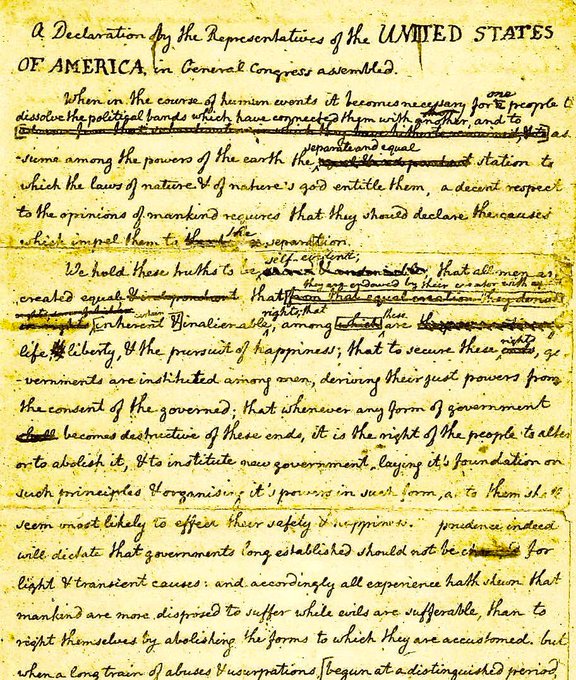 A Declaration by the Representatives of the UNITED STATES
OF AMERICA, in General Congress assembled.
When in the course of human events it becomes necessary for one people t
dissolve the political bands which have connected them with another, and to
as-
separate and equal
-sume among the powers of the earth the station to
which the laws of nature & of nature's god entitle them, a decent respect
to the opinions of mankind requires that they should declare the causes
which impel them to the separation.
self-evident;
We hold these truths to be that all men are
they are endowed by their creator with
created equal & independent that from that equal creation they derive
certain
rights; that these
inherent & inalienable, among which are
rights
life & liberty, & the pursuit of happiness; that to secure these, go-
-vernments are instituted among men, deriving their just powers from
the consent of the governed; that whenever any form of government
shall becomes destructive of these ends, it is the right of the people to alter
or to abolish it, & to institute new government, laying it's foundation on
such principles & organising it's powers in such form, as to them shall
seem most likely to effect their safety & happiness. prudence indeed
will dictate that governments long established should not be for
light & transient causes: and accordingly all experience hath shewn that
mankind are more disposed to suffer while evils are sufferable, than to
right themselves by abolishing the forms to which they are accustomed. but
when a long train of abuses & usurpations, [begun at a distinguished period,